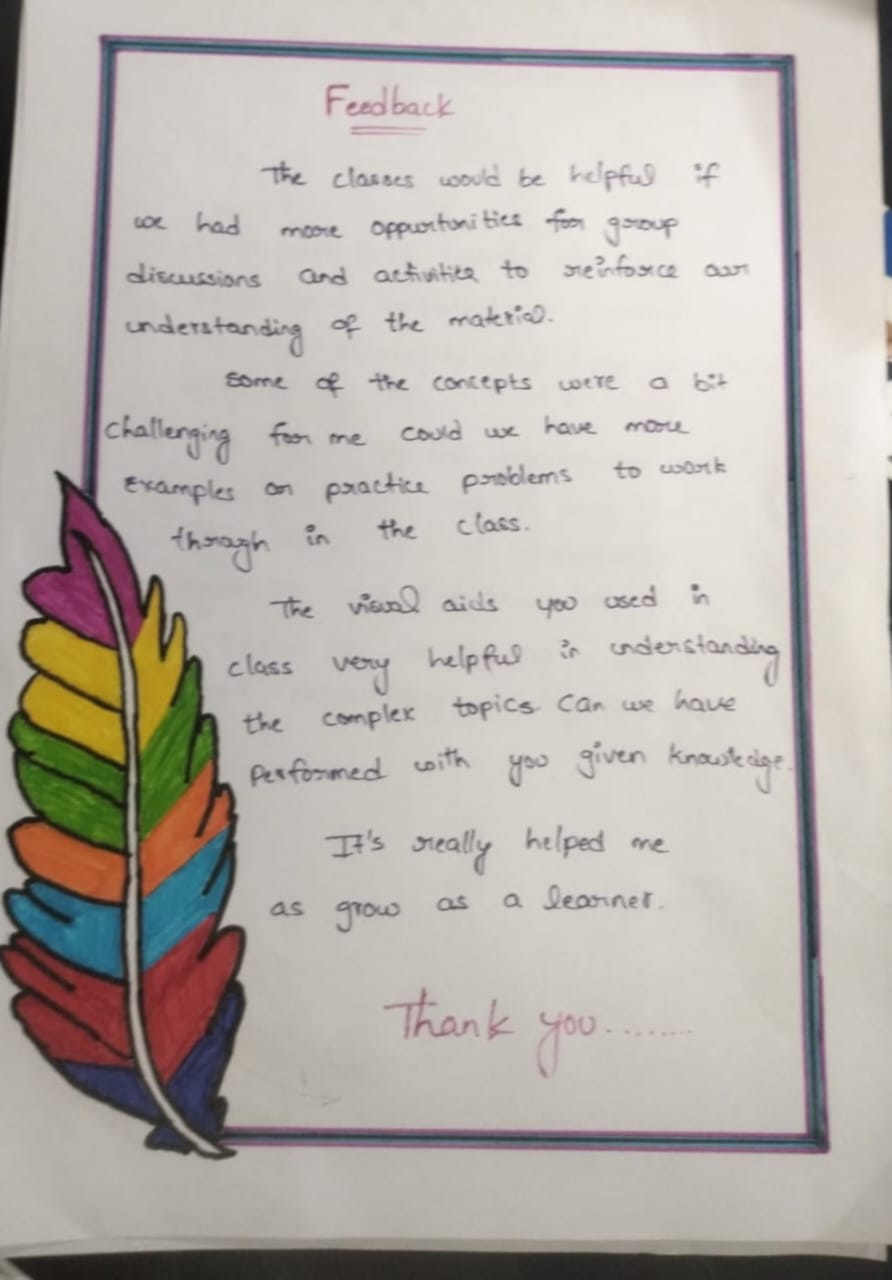 Feedback
The classes would be helpful if
we had more oppurtunities for group
discussions and activities to reinforce our
understanding of the material.
Some of the concepts were a bit
challenging for me could we have more
Examples or practice problems to work
through in the class.
The visual aids you used in
class very helpful in understanding
the complex topics. Can we have
Performed with you given knowledge.
It's really helped me
as grow as a learner.
Thank you........